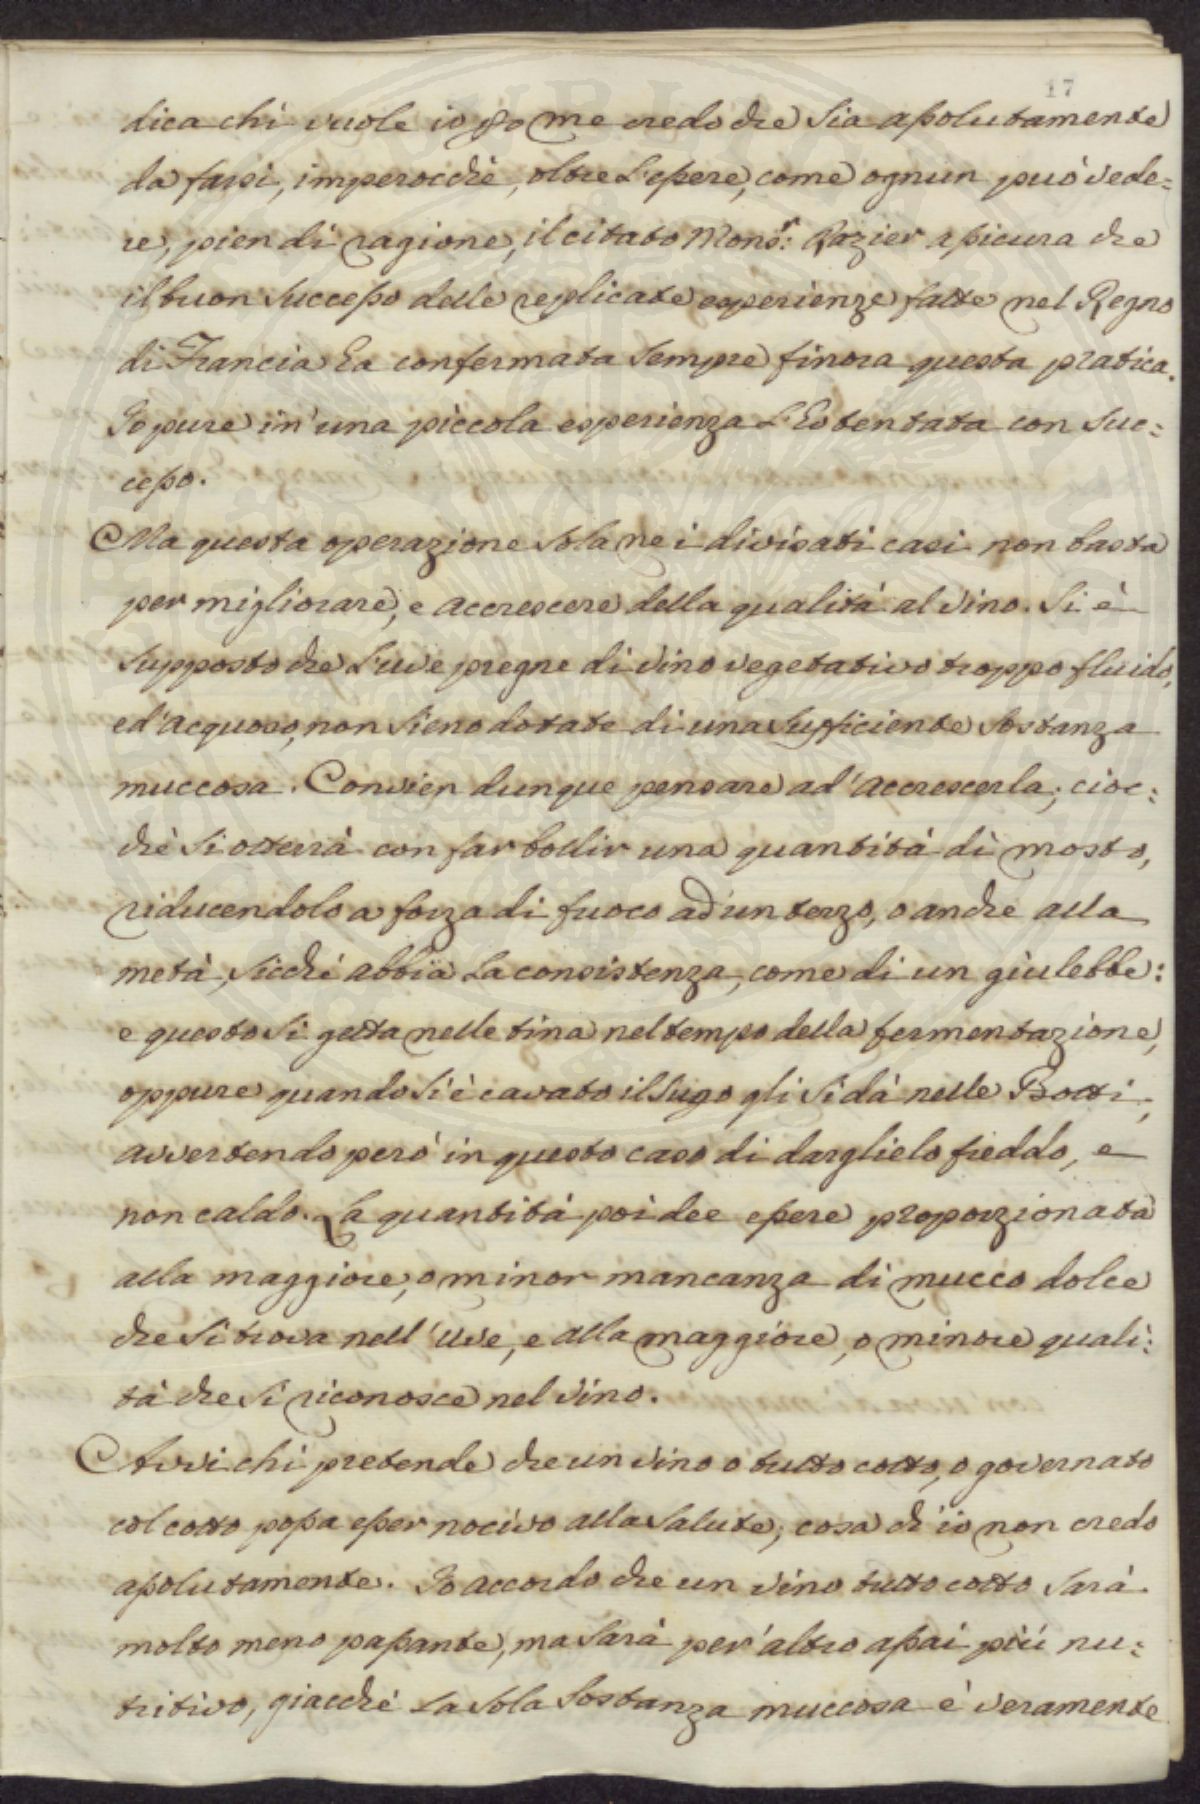 17
dica chi vuole io p me credo che sia assolutamente
da farsi, imperocchè, oltre l'essere, come ognun può vede=
re, pien di ragione, il citato Monsr: Rozier assicura che
il buon successo delle replicate esperienze fatte nel Regno
di Francia ha confermata sempre finora questa pratica.
Io pure in'una piccola esperienza l'ho tentata con suc=
cesso.
Ma questa operazione sola ne i divisati casi non basta
per migliorare, e accrescere della qualità al vino. Si è
supposto che l'uve pregne di vino vegetativo troppo fluido,
ed'acquoso, non sieno dotate di una sufficiente sostanza
muccosa. Convien dunque pensare ad'accrescerla; cioc=
chè si otterrà con far bollir una quantità di mosto,
riducendolo a forza di fuoco ad'un terzo, o anche alla
metà, sicchè abbia la consistenza, come di un giulebbe:
e questo si getta nelle tina nel tempo della fermentazione,
oppure quando si è cavato il sugo gli si dà nelle Botti;
avvertendo però in questo caso di darglielo freddo, e
non caldo. La quantità poi dee essere proporzionata
alla maggiore, o minor mancanza di mucco dolce
che si trova nell'uve, e alla maggiore, o minore quali=
tà che si riconosce nel vino.
Avvi chi pretende che un vino o tutto cotto, o governato
col cotto possa esser nocivo alla salute; cosa ch'io non credo
assolutamente. Io accordo che un vino tutto cotto sarà
molto meno passante, ma sarà per'altro assai più nu=
tritivo, giacchè la sola sostanza muccosa è veramente